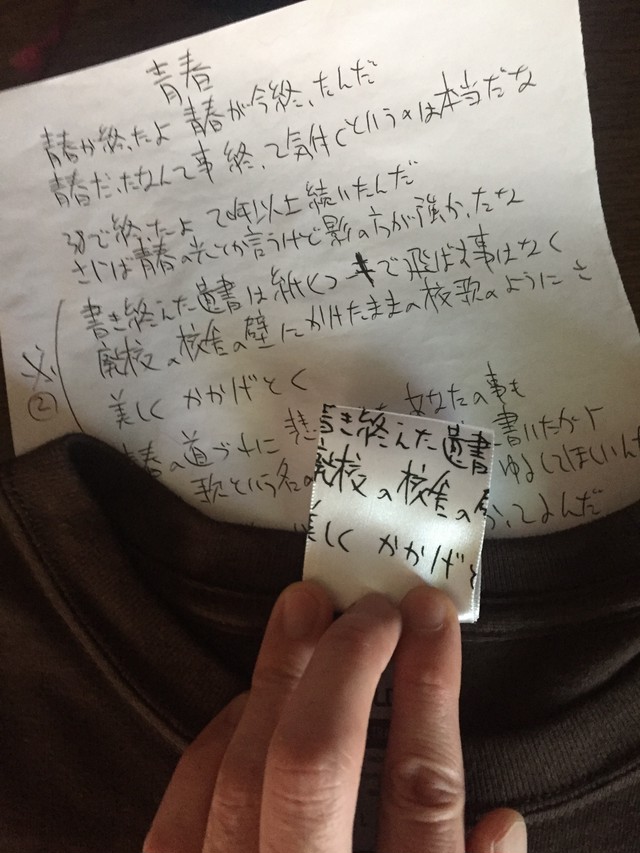 青春
青春が終ったよ 青春が今終ったんだ
青春だったなんて事 終って気付くというのは本当だな
3秒で終ったよ て10年以上続いたんだ
さらば青春の光とか言うけど影の方が強かったな
書き終えた遺書は紙ヒコーキで飛ばす事はなく
廃校の校舎の壁にかけたままの校歌のように さ
美しく かかげとく
※②
青春の道づれに 悲 あなたの事も
歌という名の 書いたから
ゆるしてほしいん
かってよんだ
書き終えた遺書
廃校の校舎の
美しく かかげと